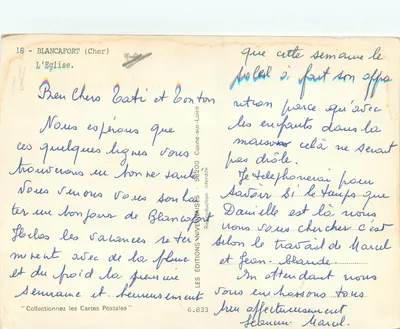 18 - BLANCAFORT (Cher)
L'Eglise.
Bien Chers Tati et Tonton
Nous espérons que
ces quelques lignes vous
trouverons en bonne santé
Nous venons vous souhai
ter un bonjour de Blancafort
Hélas les vacances se ter
minent avec de la pluie
et du froid la première
semaine et heureusement
"Collectionnez les Cartes Postales"
LES ÉDITIONS NIVERNAISES 58200 Cosne-sur-Loire
Reproduction interdite
6.833
que cette semaine le
soleil à fait son appa
rition parce qu'avec
les enfants dans la
maison celà ne serait
pas drôle.
Je telephonerai pour
savoir si le temps que
Danielle est là nous
vous chercher c'est
selon le travail de Marcel
et Jean-Claude.
En attendant nous
vous embrassons tous
bien affectueusement
Jeannine Marcel.